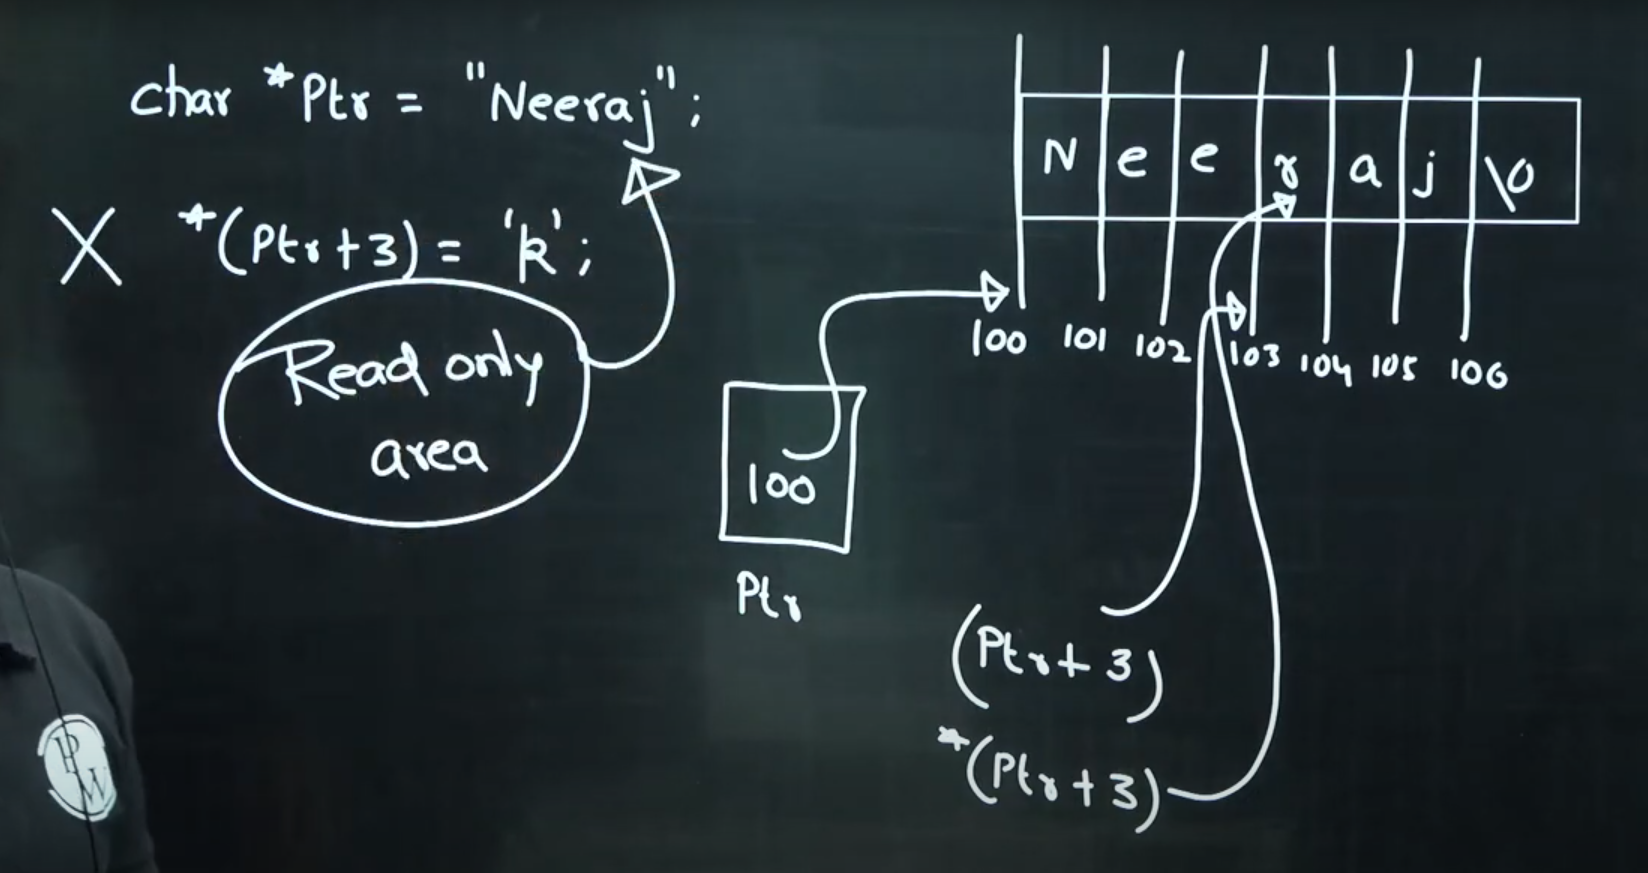 char *Ptr = "Neeraj";
X *(Ptr+3) = 'k';
Read only
area
N e e r a j \0
100 101 102 103 104 105 106
100
Ptr
(Ptr+3)
*(Ptr+3)
PW